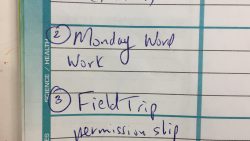 ② Monday Word
Work
③ Field Trip
permission slip
SCIENCE / HEALTH